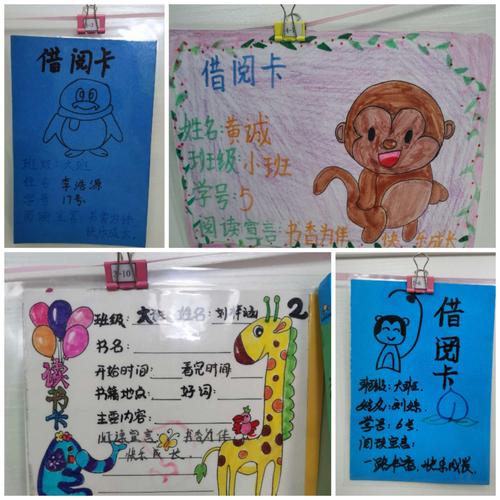 借阅卡
班级:大班
姓名 李浩源
学号 17号
阅读宣言:书香为伴
快乐成长。
借阅卡
姓名:黄诚
班级:小班
学号:5
阅读宣言:书香为伴 快乐成长
3-10
读书卡
班级: 姓名:刘梓涵
2
书名:
开始时间: 看完时间
书籍地点: 好词:
主要内容:
阅读宣言: 书香为伴
快乐成长。
借阅卡
班级:大班
姓名:刘姝
学号:6号
阅读宣言:
一路书香,快乐成长